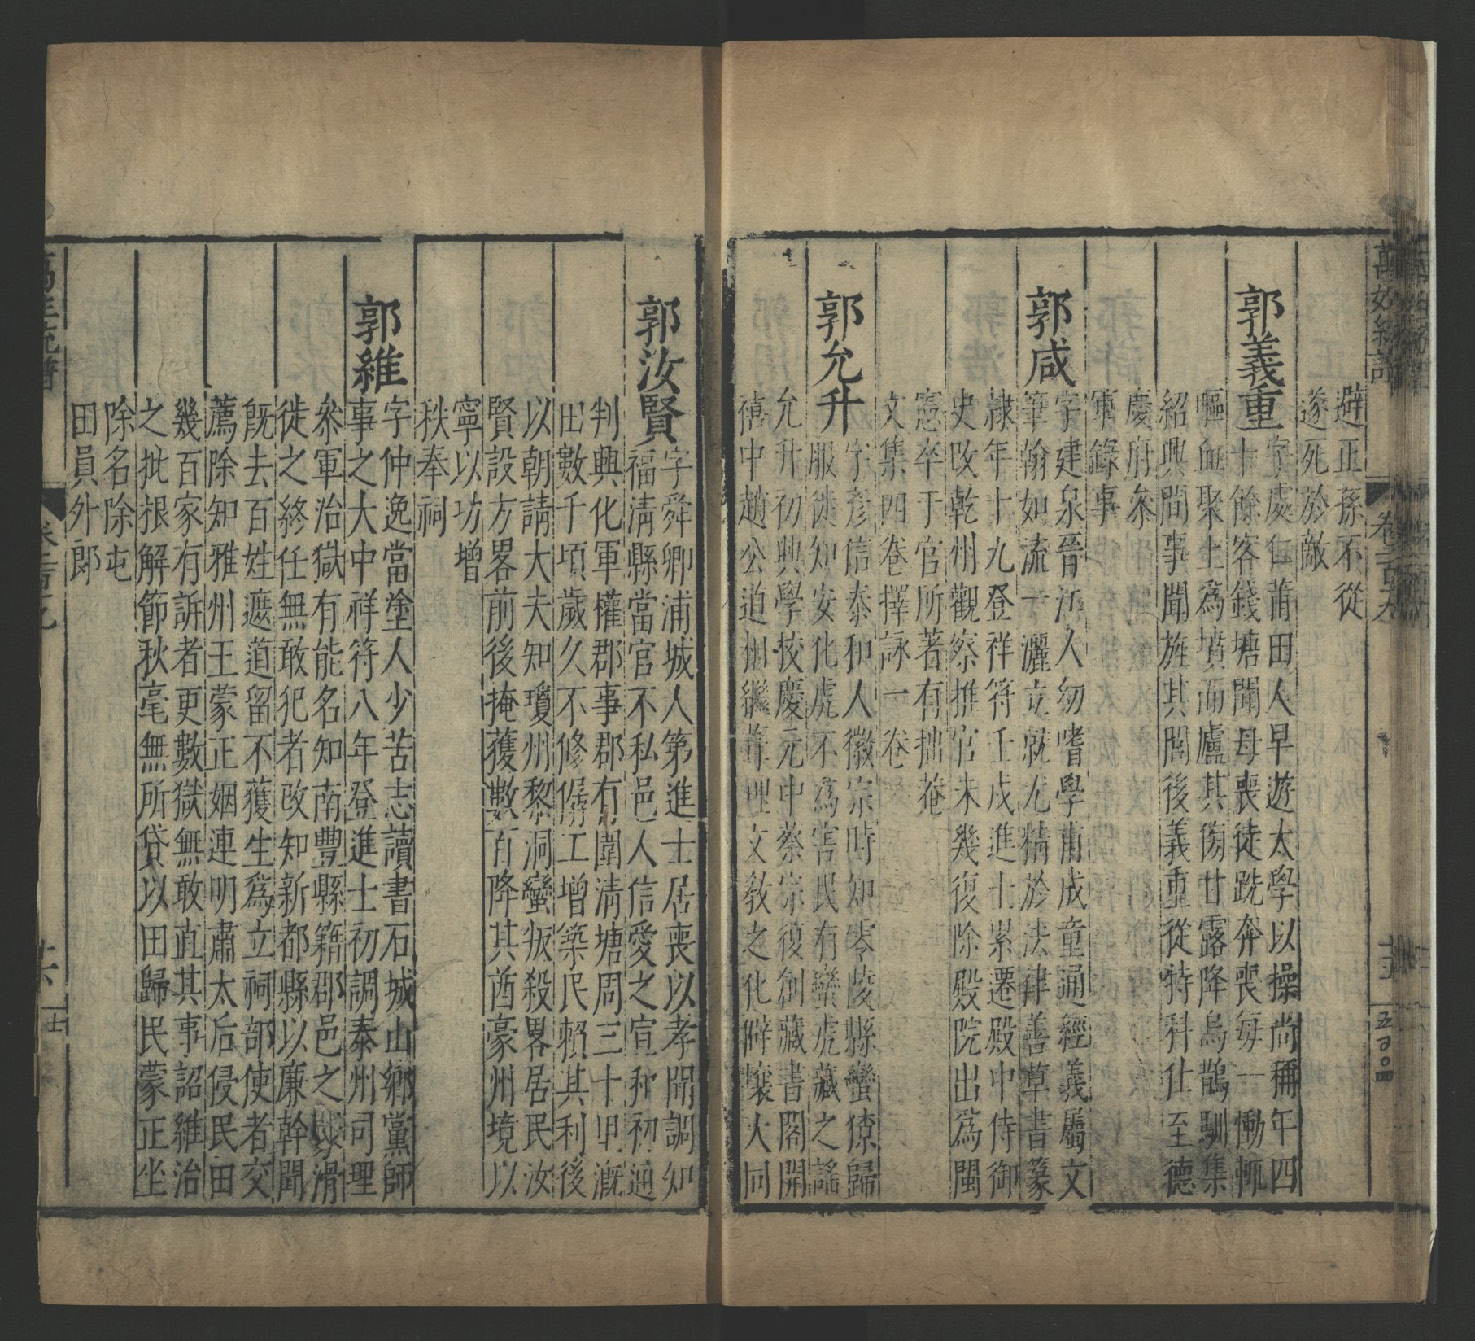 萬姓統譜 卷一百十九 十五 五百〇四
避正孫不從
遂死於敵
郭義重
字處仁莆田人早遊太學以操尚稱年四
十餘客錢塘聞母喪徒跣奔喪每一慟輒
嘔血聚土為墳而廬其傍甘露降烏鵲馴集
紹興間事聞旌其閭後義重從特科仕至德
慶府叅
軍錄事
郭咸
字建泉晉江人幼嗜學甫成童通經義屬文
筆翰如流一灑立就尤精於法律善草書篆
隸年十九登祥符壬戌進士累遷殿中侍御
史改乾州觀察推官未幾復除殿院出為閩
憲卒于官所著有拙菴
文集四卷擇詠一卷
郭允升
字彥信泰和人徽宗時知零陵縣蠻獠歸
服徙知安化虎不為害民有蠻虎藏之謠
允升初興學校慶元中蔡宗復創藏書閣開
禧中趙公迫相繼葺理文教之化辟壤大同
郭汝賢
字舜卿浦城人第進士居喪以孝聞調知
福清縣當官不私邑人信愛之宣和初通
判興化軍權郡事郡有圍清塘周三十里溉
田數千頃歲久不修僝工增築民賴其利後
以朝請大夫知瓊州黎洞蠻叛殺畧居民汝
賢設方畧前後掩獲數百降其酋豪州境以
寧以功增
秩奉祠
郭維
字仲逸當塗人少苦志讀書石城山鄉黨師
事之大中祥符八年登進士初調泰州司理
叅軍治獄有能名知南豐縣籍郡邑之滑
徒之終任無敢犯者改知新都縣以廉幹聞
既去百姓遮道留不獲生為立祠部使者交
薦除知雅州王蒙正姻連明肅太后侵民田
幾百家有訴者更數獄無敢直其事詔維治
之批根解節秋毫無所貸以田歸民蒙正坐
除名除屯
田員外郎
萬姓統譜 卷一百十九 十六